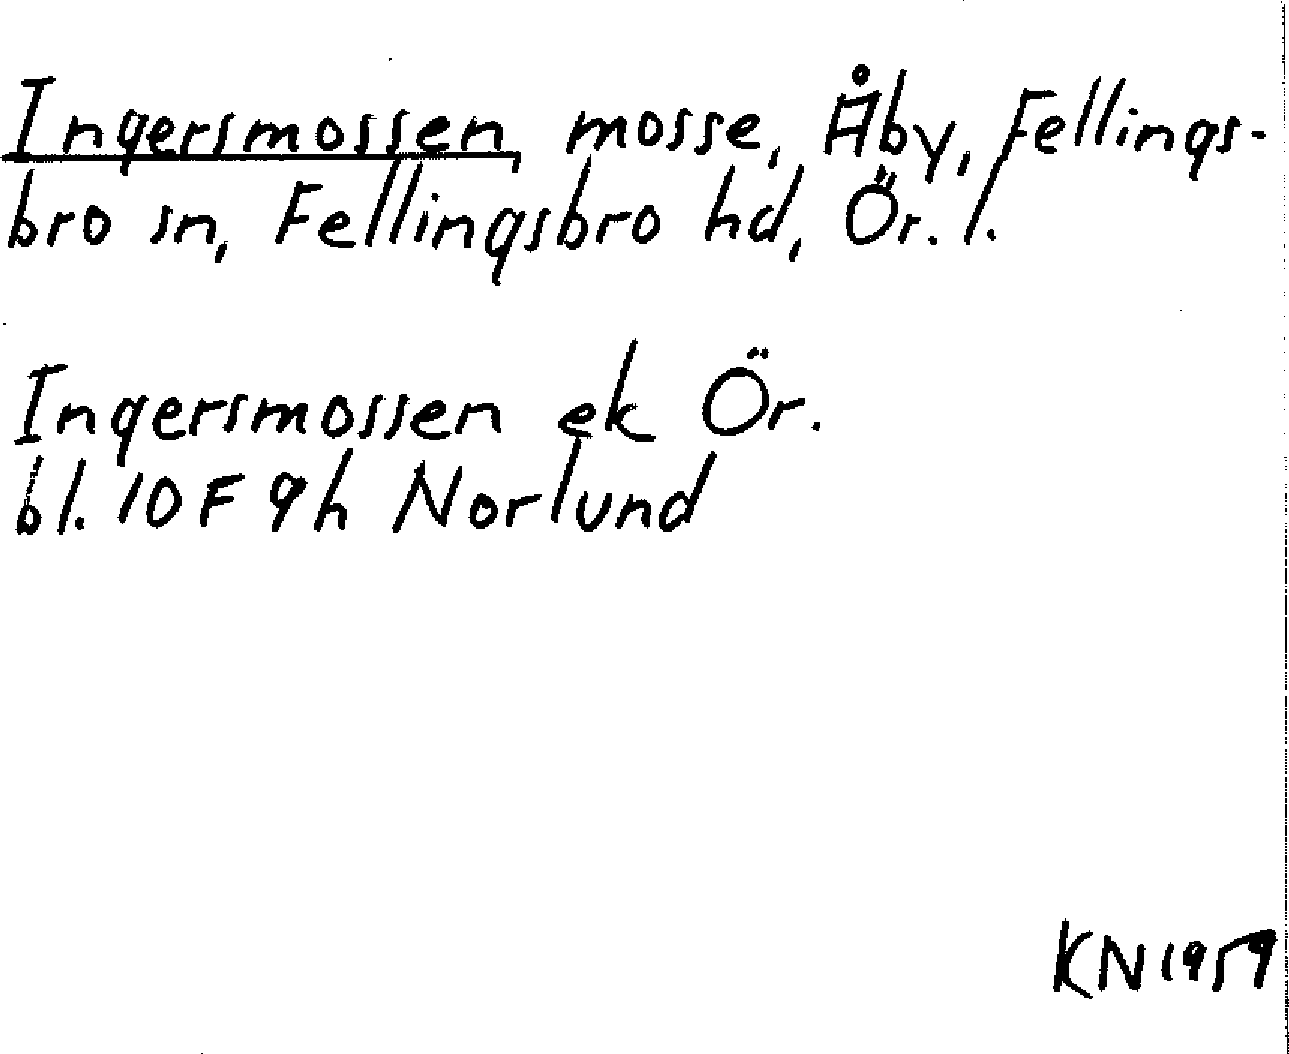 Ingersmossen, mosse, Åby, Fellings-
bro sn, Fellingsbro hd, Ör. l.
Ingersmossen ek Ör.
bl. 10F 9h Norlund
KN 1959